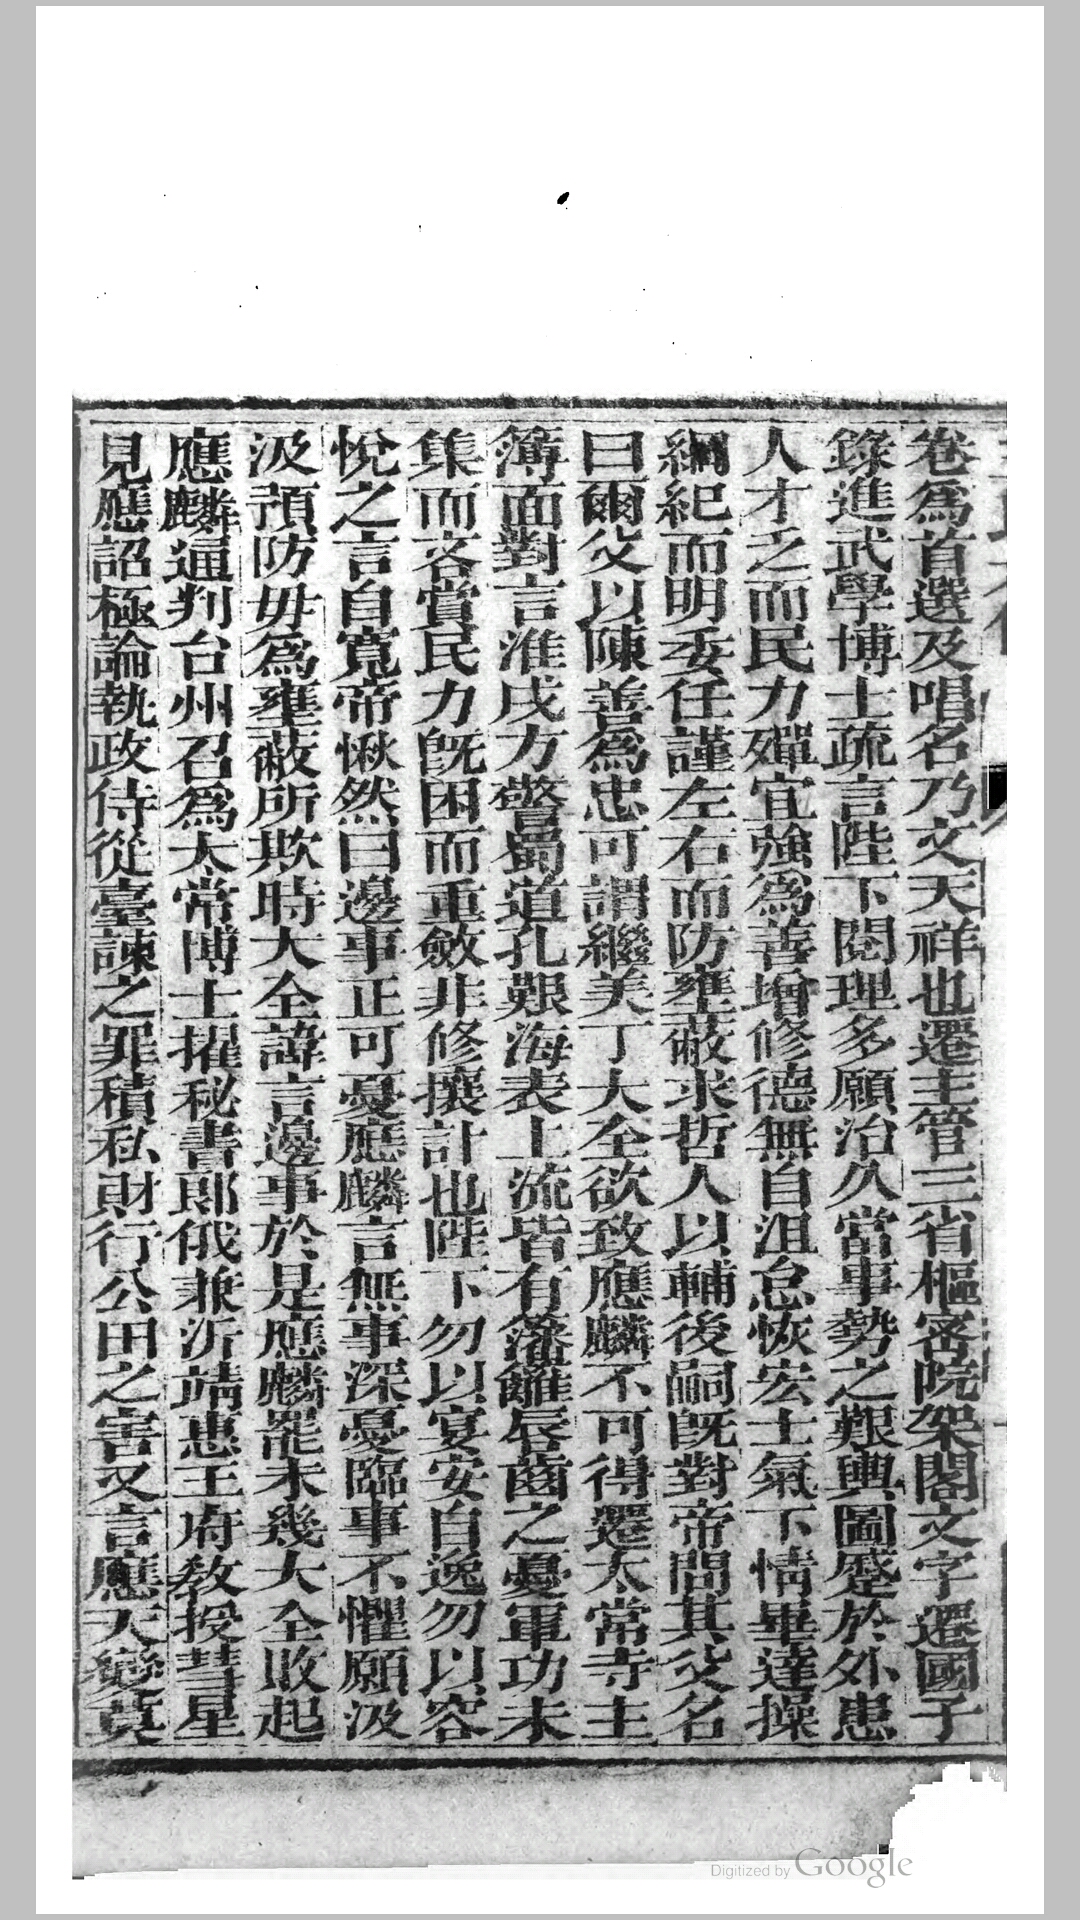 卷爲首選及唱名乃文天祥也遷主管三省樞密院架閣文字遷國子
錄進武學博士疏言陛下閱理多願治久當事勢之艱輿圖蹙於外患
人才乏而民力殫宜強爲善增修德無自沮怠恢宏士氣下情畢達操
綱紀而明委任謹左右而防壅蔽求哲人以輔後嗣旣對帝問其父名
曰爾父以陳善爲忠可謂繼美丁大全欲致應麟不可得遷太常寺主
簿面對言淮戍方警蜀道孔艱海表上流皆有藩籬脣齒之憂軍功未
集而吝賞民力旣困而重斂非修攘計也陛下勿以宴安自逸勿以容
悅之言自寬帝愀然曰邊事正可憂應麟言無事深憂臨事不懼願汲
汲預防毋爲壅蔽所欺時大全諱言邊事於是應麟罷未幾大全敗起
應麟通判台州召爲太常博士擢秘書郎俄兼沂靖惠王府敎授彗星
見應詔極論執政侍從臺諫之罪積私財行公田之害又言應天變莫
Digitized by Google